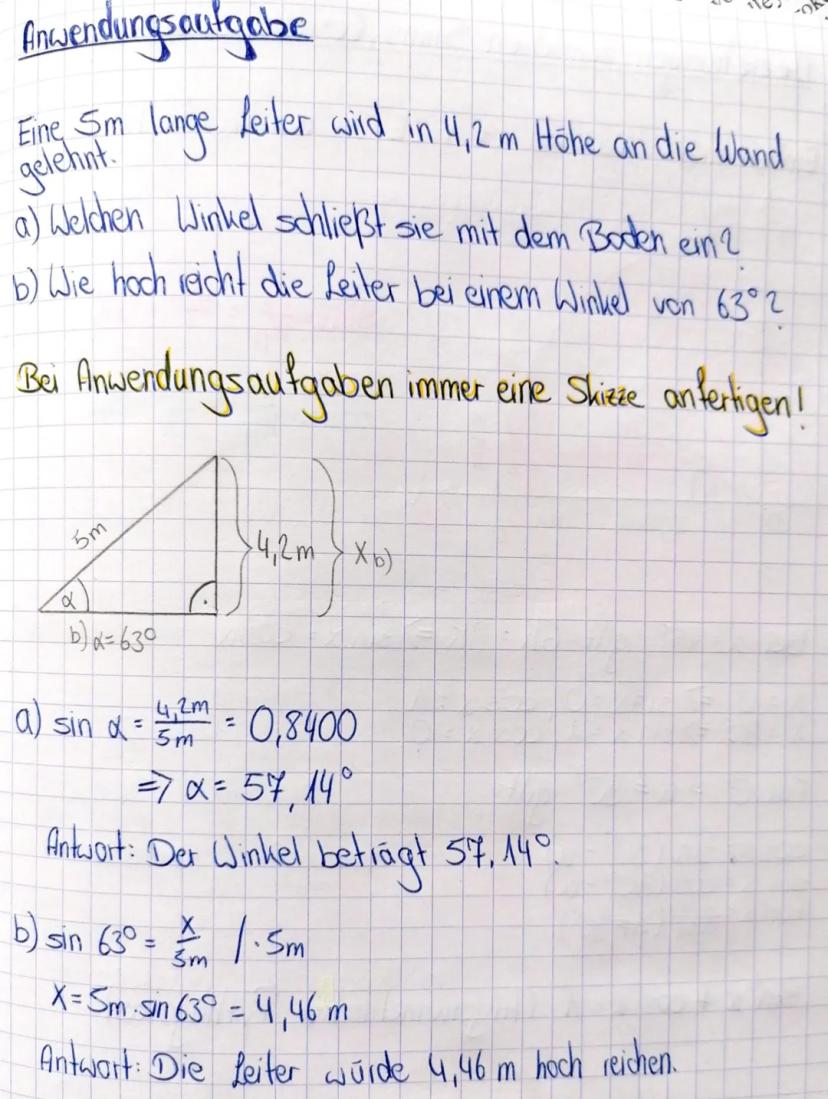 Anwendungsaufgabe
Eine 5m lange Leiter wird in 4,2 m Höhe an die Wand
gelehnt.
a) Welchen Winkel schließt sie mit dem Boden ein?
b) Wie hoch reicht die Leiter bei einem Winkel von 63°?
Bei Anwendungsaufgaben immer eine Skizze anfertigen!
5m
4,2m
x b)
α
b) α=63°
a) sin α = 4,2m/5m = 0,8400
=> α = 57,14°
Antwort: Der Winkel beträgt 57,14°.
b) sin 63° = x/5m /·5m
x=5m·sin63° = 4,46 m
Antwort: Die Leiter würde 4,46 m hoch reichen.